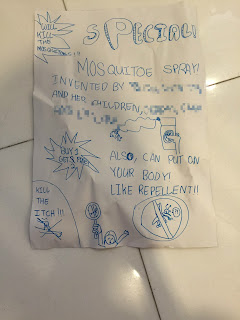 WILL
KILL
THE
MOSQUITOES!!!
SPECIAL!
MOSQUITOE SPRAY!
INVENTED BY
AND HER CHILDREN,
AND
BUY 2
GET 1 FREE!
ALSO, CAN PUT ON
YOUR BODY!
LIKE REPELLENT!!
KILL
THE
ITCH!!!